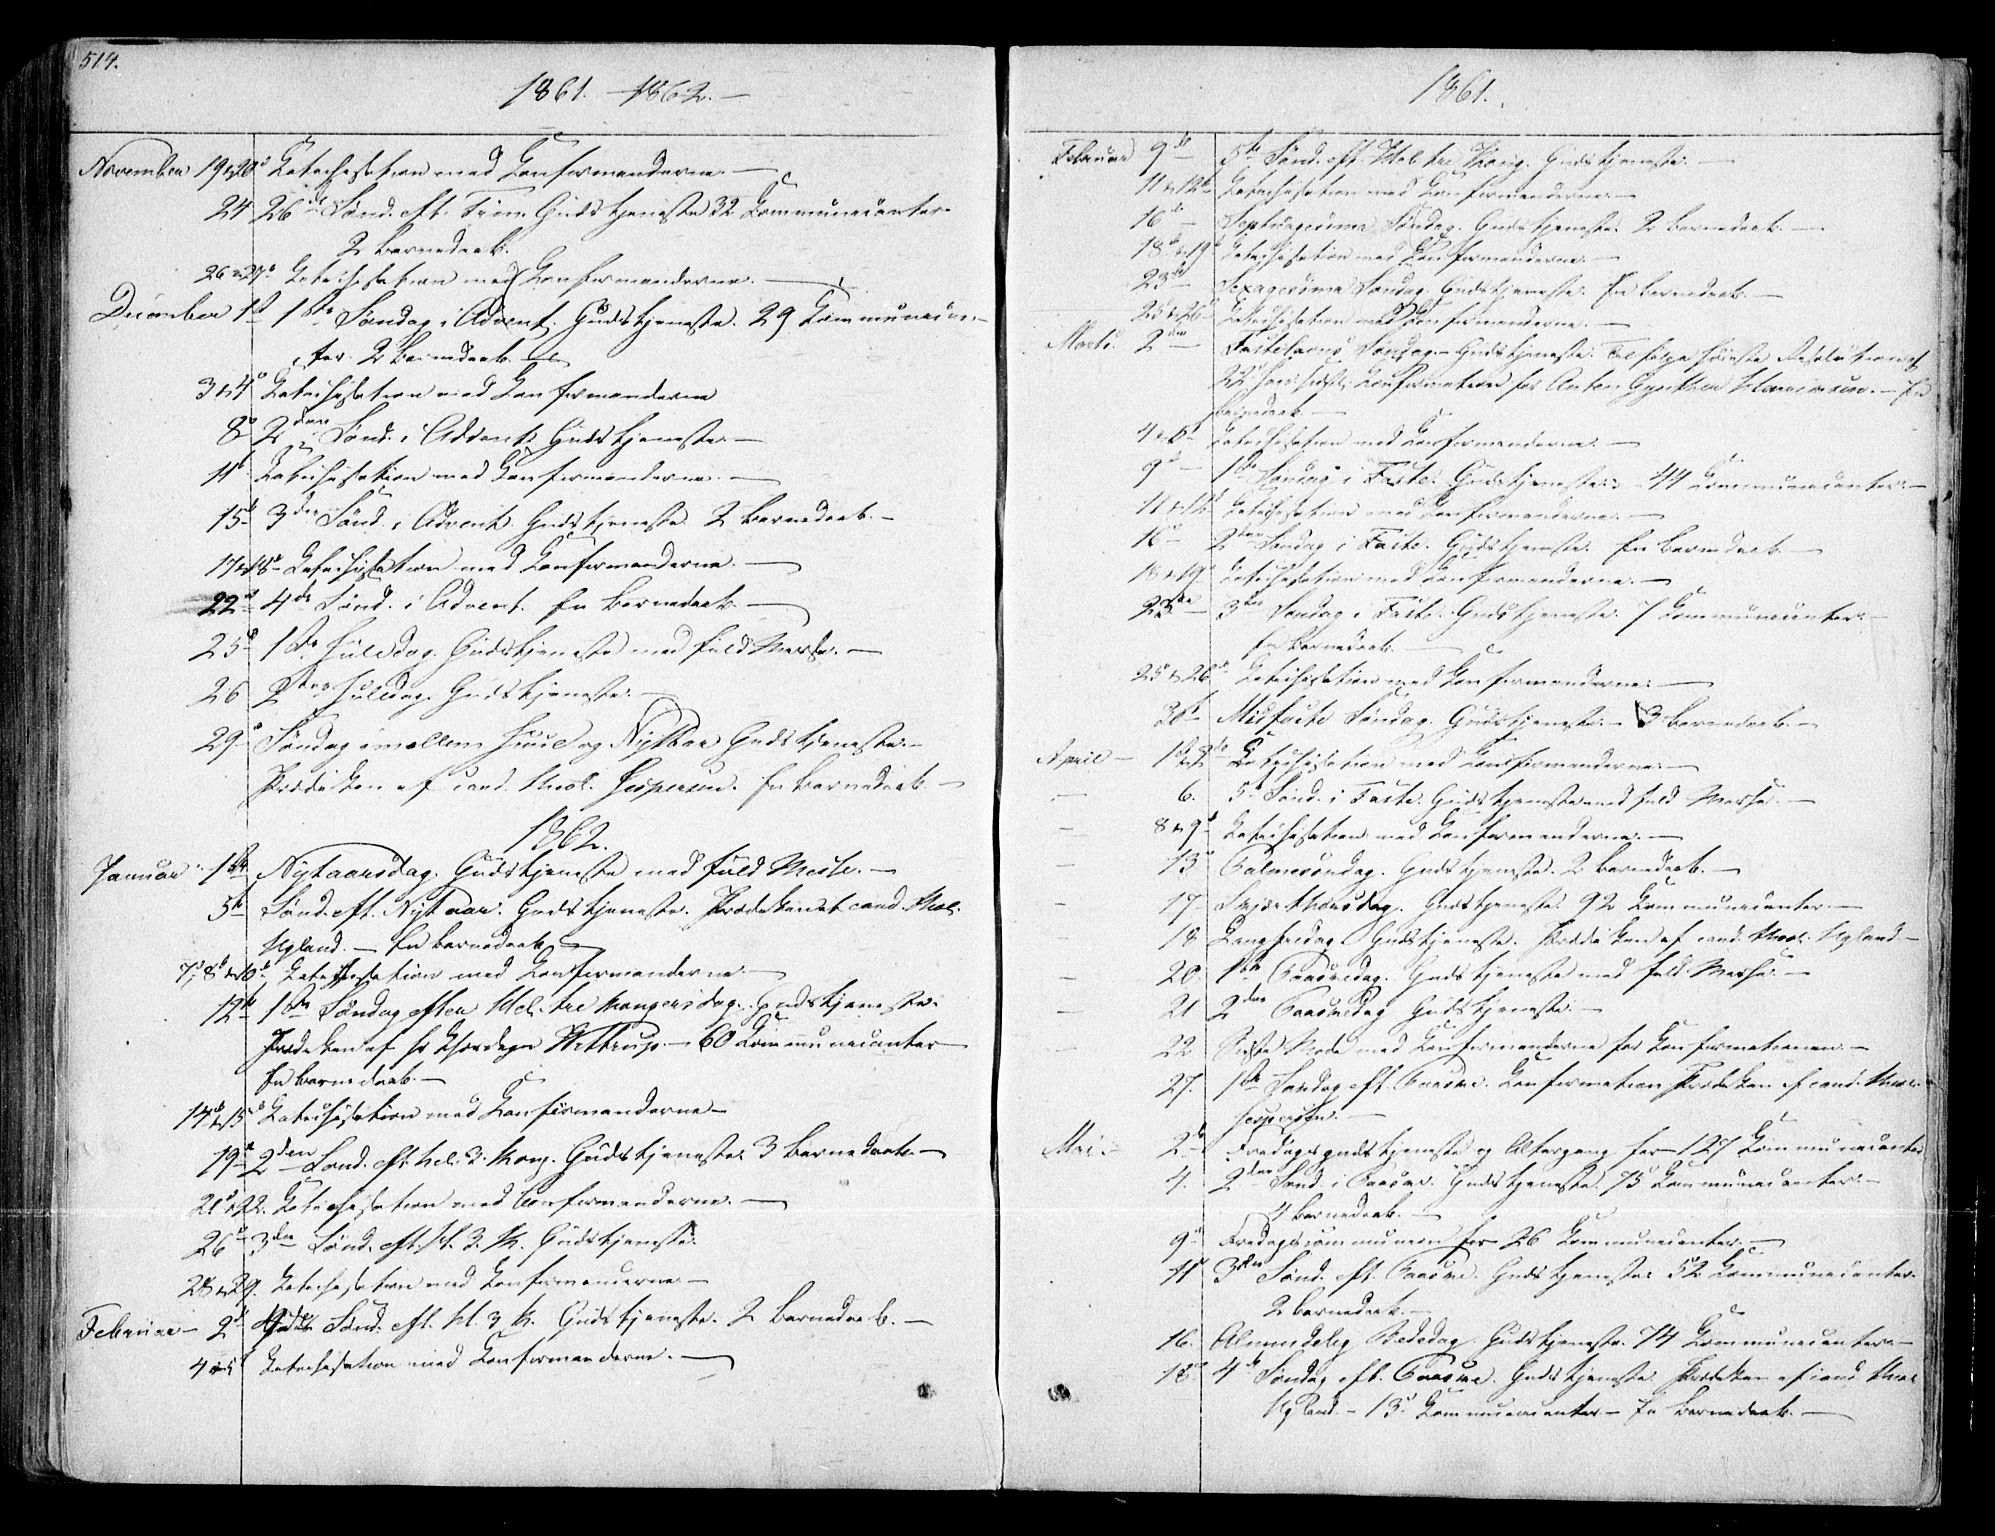 514.
1861. - 1862. -
November 19 & 20de Katechisation med Konfirmanderne. -
24 26de Sønd. eft. Trin. Gudstjeneste 32 Kommunicanter
2 Barnedaab.
26 & 27de Katechisation med Konfirmanderne. -
December 1ste 1ste Søndag i Advent. Gudstjeneste. 29 Kommunican-
ter. 2 Barnedaab. -
3 & 4de Katechisation med Konfirmanderne
8de 2den Sønd. i Advent. Gudstjeneste. -
11te Katechisation med Konfirmanderne. -
15de 3die Sønd. i Advent. Gudstjeneste. 2 Barnedaab. -
17 & 18de Katechisation med Konfirmanderne. -
22de 4de Sønd. i Advent. En Barnedaab. -
25de 1ste Juledag. Gudstjeneste med fuld Messe. -
26 2den Juledag. Gudstjeneste. -
29de Søndag imellem Juul og Nytaar Gudstjeneste. -
Prædiken af cand. theol. Jespersen. En Barnedaab. -
1862.
Januar 1ste Nytaarsdag. Gudstjeneste med fuld Messe. -
5te Sønd. eft. Nytaar. Gudstjeneste. Prædiken af cand. theol.
Ugland. - En Barnedaab. -
7de, 8de & 10de Katechisation med Konfirmanderne. -
12te 1ste Søndag efter Hel. tre Kongersdag. Gudstjeneste.
Prædiken af Hr Wittrup. - 60 Kommunicanter
En Barnedaab. -
14de & 15de Katechisation med Konfirmanderne -
19de 2den Sønd. eft. Hel. 3. Kong. Gudstjeneste 3 Barnedaab. -
21de & 22. Katechisation med Confirmanderne. -
26de 3die Sønd. eft. H. 3. K. Gudstjeneste.
28 & 29. Katechisation med Konfirmanderne. -
Februar - 2de 4de Sønd. eft. H. 3 K. Gudstjeneste. 2 Barnedaab. -
4 & 5te Katechisation med Konfirmanderne. -
1861.
Februar 9de 5te Sønd. eft. Hel. tre Kong. Gudstjeneste. -
11 & 12te Katechisation med Konfirmanderne. -
16de Septuagesima Søndag. Gudstjeneste. 2 Barnedaab. -
18de & 19de Katechisation med Konfirmanderne. -
23de Sexagesima Søndag. Gudstjeneste. En Barnedaab. -
25 & 26de Katechisation med Konfirmanderne. -
Marts. 2den Fastelavns Søndag. - Gudstjeneste. Ifølge høieste Resolution af
22 Konfirmation for Anton Gynther - En
Barnedaab. -
4 & 5te Katechisation med Konfirmanderne. -
9de 1ste Søndag i Faste. Gudstjeneste. - 44 Kommunicanter. -
11 & 12te Katechisation med Konfirmanderne. -
16de 2den Søndag i Faste. Gudstjeneste. En Barnedaab. -
18 & 19de Katechisation med Konfirmanderne. -
23de 3die Søndag i Faste. Gudstjeneste. 7 Kommunicanter. -
En Barnedaab. -
25de & 26de Katechisation med Konfirmanderne. -
30te Midfaste Søndag. Gudstjeneste. - 3 Barnedaab. -
April - 1ste & 2den Katechisation med Konfirmanderne. -
- 6. 5te Sønd. i Faste. Gudstjeneste med fuld Messe. -
- 8 & 9de Katechisation med Konfirmanderne. -
- 13 Palmesøndag. Gudstjeneste. 2 Barnedaab. -
- 17 Skjærthorsdag. Gudstjeneste. 92 Kommunicanter. -
- 18 Langfredag Gudstjeneste. Prædiken af cand. theol. Ugland -
- 20. 1ste Paaskedag. Gudstjeneste med fuld Messe. -
- 21 2den Paaskedag Gudstjeneste. -
- 22 Sidste Møde med Konfirmanderne før Konfirmationen. -
27. 1ste Søndag eft. Paaske. Konfirmation Prædiken af cand. theol.
Jespersen. -
Mai. - 2de Fredagsgudstjeneste og Altergang for 127 Kommunicanter
4. 2den Sønd. i Paaske. Gudstjeneste. 75 Kommunicanter. -
4 Barnedaab. -
9de Fredagscommunion for 26 Kommunicanter. -
11te 3die Sønd. eft. Paaske. Gudstjeneste 52 Kommunicanter.
2 Barnedaab. -
16. Almindelig Bededag. Gudstjeneste. 74 Kommunicanter -
18de 4de Søndag eft. Paaske. Gudstjeneste. Prædiken af cand. theol
Ugland. - 13 Kommunicanter - En Barnedaab. -